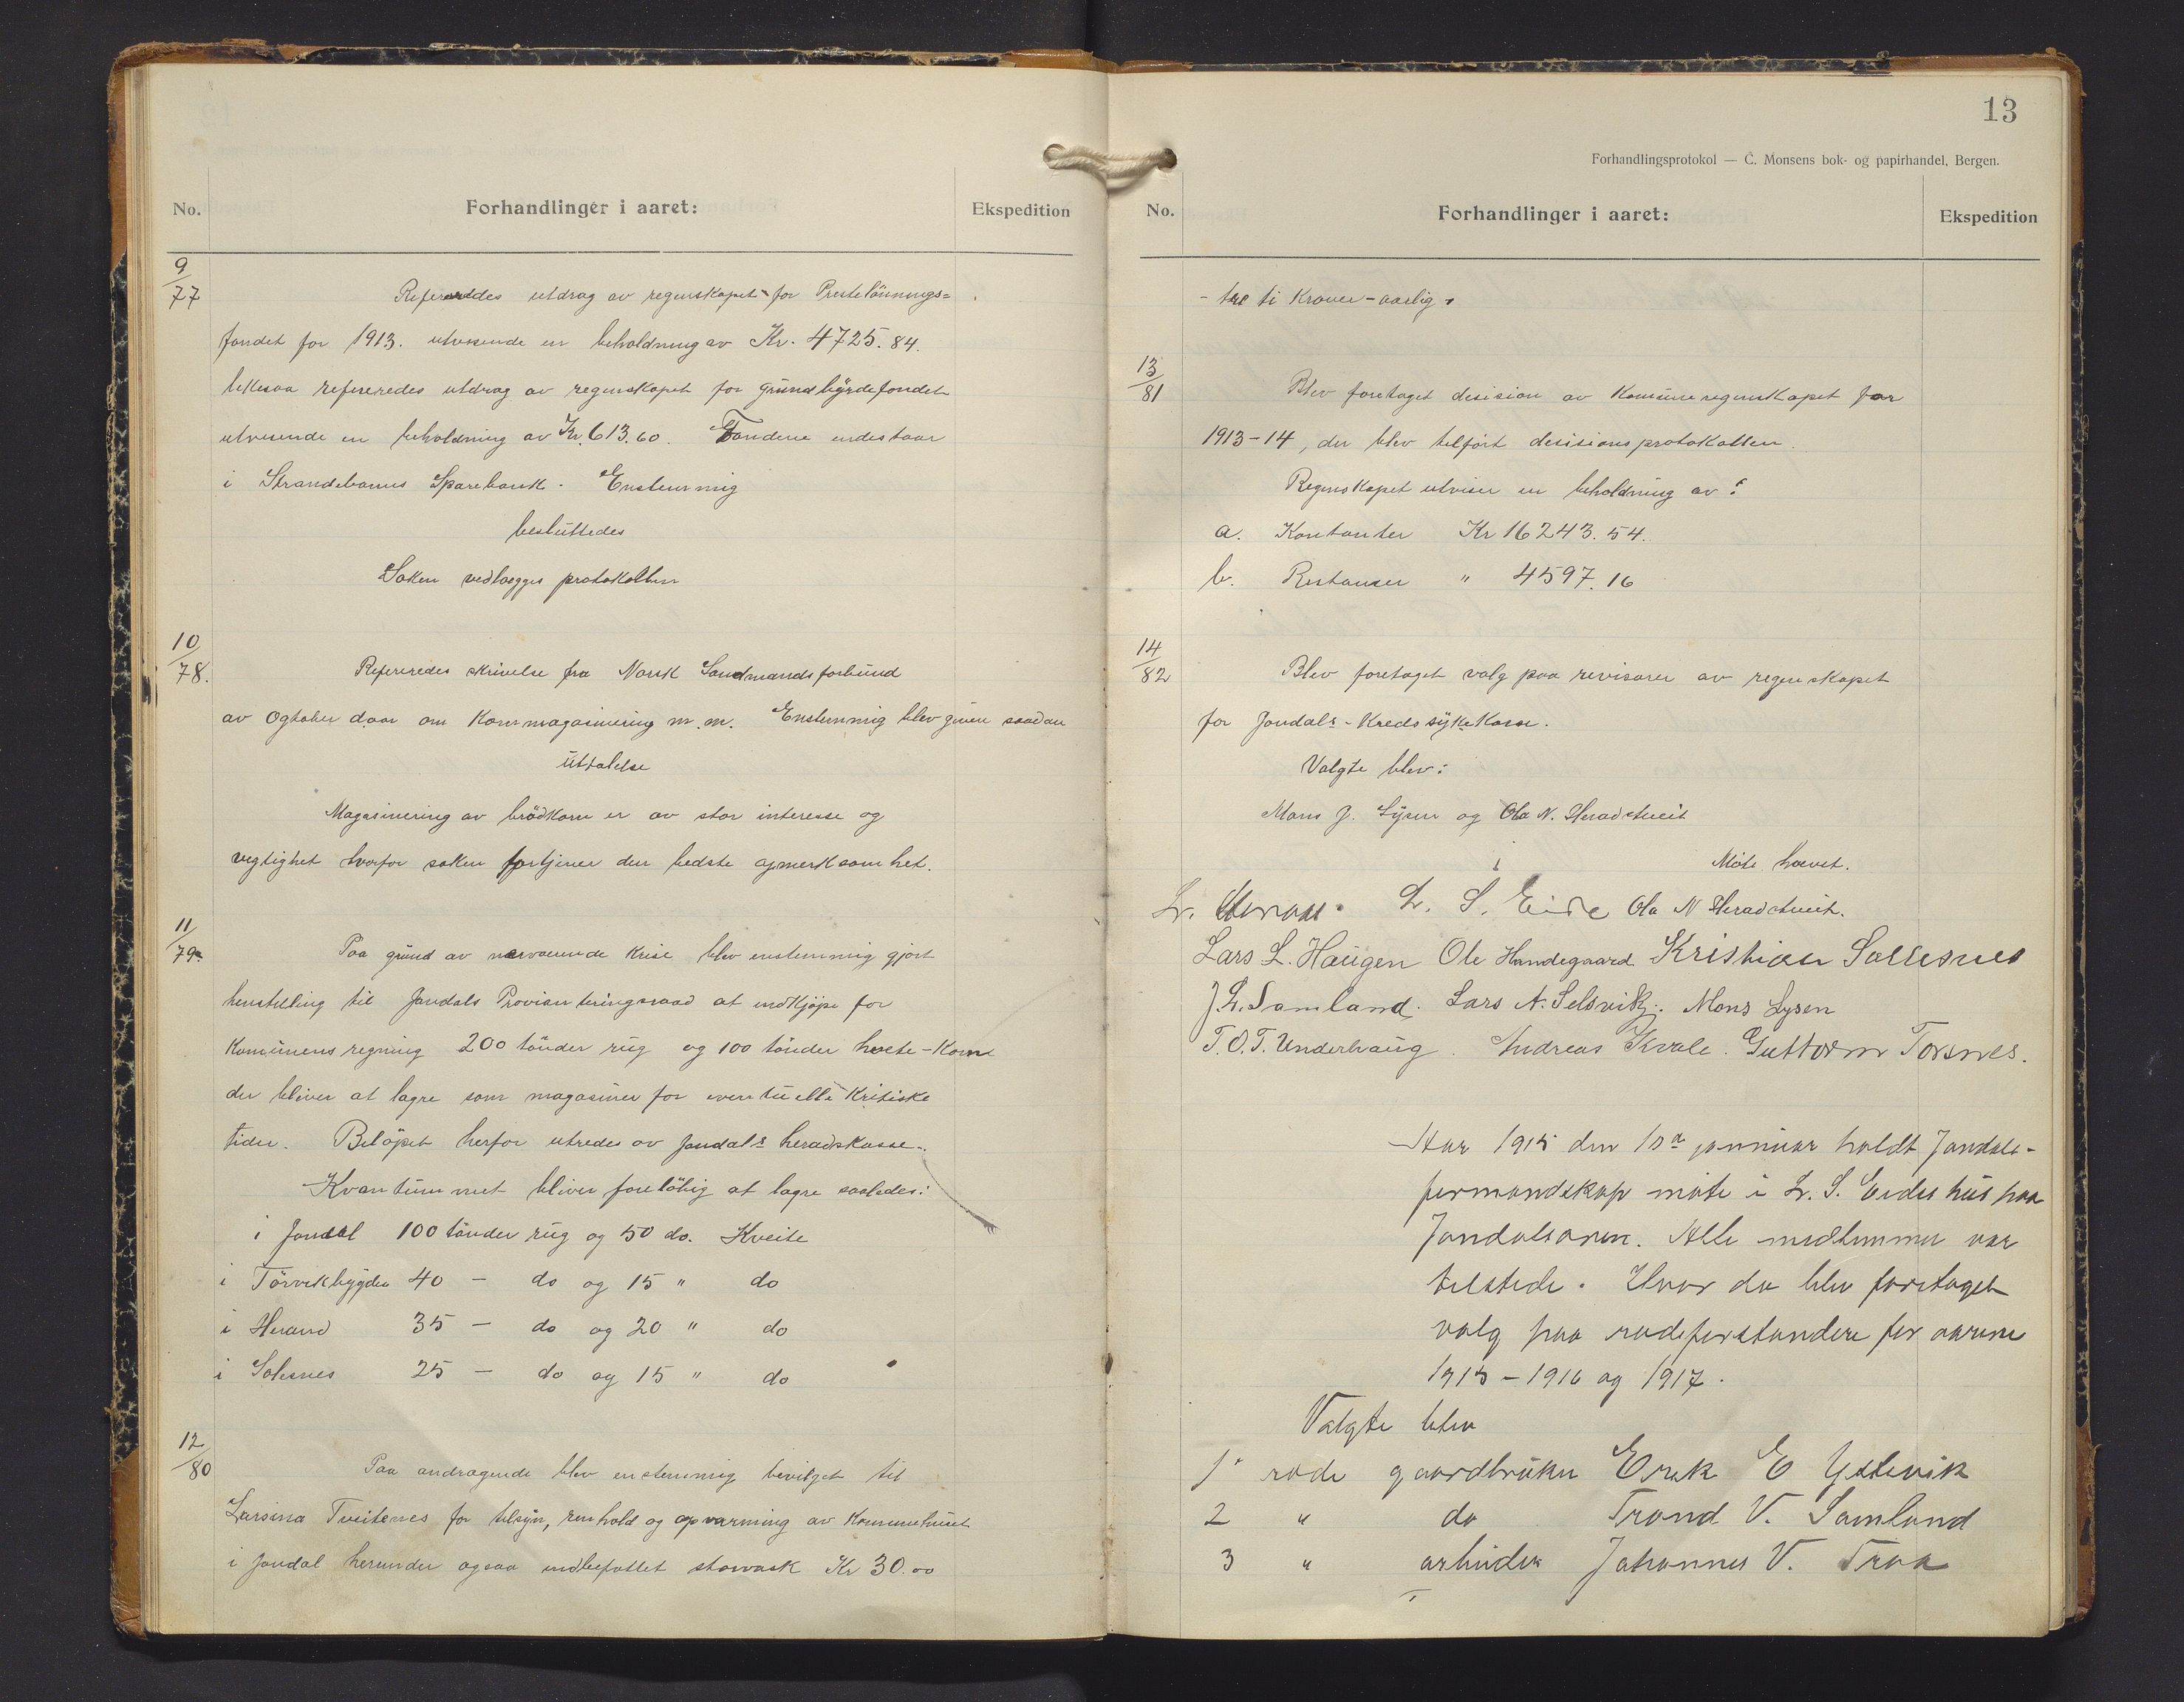 No.
Forhandlinger i aaret:
Ekspedition
9/77
Refereredes utdrag av regnskapet for Prestelönnings=
fondet for 1913. utvisende en beholdning av Kr. 4725.84.
likesaa refereredes utdrag av regnskapet for Grundbyrdefondet
utvisende en beholdning av Kr. 613.60. Fondene indestaar
i Strandebarms Sparebank. Enstemmig
besluttedes
Saken vedlægges protokollen
10/78.
Refereredes skrivelse fra Norsk Landmandsforbund
av Ogtober d.aar om Kornmagasinering m.m. Enstemmig blev given saadan
üttalelse
Magasinering av brödkorn er av stor interesse og
vegtighet hvorfor saken fortjener den bedste opmerksomhet.
11/79.
Paa grund av nærværende Krise blev enstemmig gjort
henstilling til Jondals Provianteringsraad at indkjöpe for
Kommunens regning 200 tönder rug og 100 tönder hvete-Korn
der bliver at lagre som magasiner for eventuelle Kritiske
tider. Belöpet herfor utredes av Jondals heradskasse.
Kvantummet bliver forelöbig at lagre saaledes:
i Jondal 100 tönder rug og 50 do. Kveite
i Törvikbygden 40 – do og 15 " do
i Herand 35 – do og 20 " do
i Solesnes 25 – do og 15 " do
12/80
Paa andragende blev enstemmig bevilget til
Larsina Tveitenes for tilsyn, renhold og opvarming av Kommunehuset
i Jondal herunder ogsaa indbefattet storvask Kr 30.00
13
Forhandlingsprotokol — C. Monsens bok- og papirhandel, Bergen.
No.
Forhandlinger i aaret:
Ekspedition
- tre ti Kroner - aarlig.
13/81
Blev foretaget desision av Kommuneregnskapet for
1913-14, der blev tilfört desisionsprotokollen.
Regnskapet utviser en beholdning av:
a. Kontanter Kr 16243.54.
b. Restanser " 4597.16
14/82
Blev foretaget valg paa revisorer av regnskapet
for Jondals-Kredssykekasse.
Valgte blev:
Mons J. Lysen og Ola N. Heradstveit
Möte hævet.
L. S. Eide Ola N Heradstveit.
Lars L. Haugen Ole Handegaard Kristian Sollesnes
J. L. Samland. Lars N. Selsvik. Mons Lysen
T. O. T. Underhaug. Andreas Kvale. Guttorm Torsnes.
Aar 1915 den 10de januar holdt Jondals-
formandskap möte i L. S. Eides hus paa
Jondalsören. Alle medlemmer var
tilstede. Hvor da blev foretaget
valg paa rodeforstandere for aarene
1915 - 1916 og 1917.
Valgte blev
1. rode gaardbruker Erik E Ystevik
2 " do Trond V. Samland
3 " arbeider Johannes V. Traa